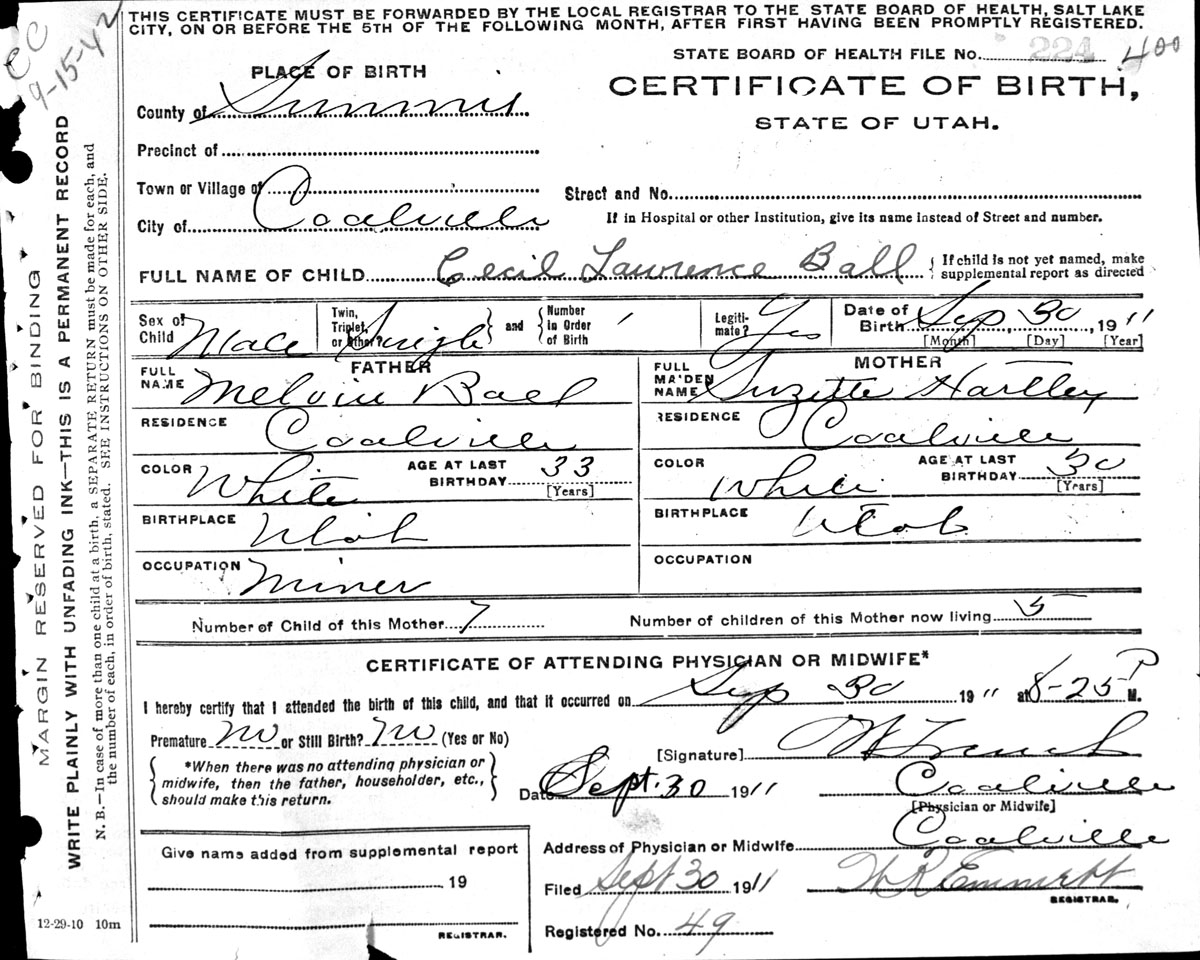 THIS CERTIFICATE MUST BE FORWARDED BY THE LOCAL REGISTRAR TO THE STATE BOARD OF HEALTH, SALT LAKE
CITY, ON OR BEFORE THE 5TH OF THE FOLLOWING MONTH, AFTER FIRST HAVING BEEN PROMPTLY REGISTERED.
CC
9-15-42
STATE BOARD OF HEALTH FILE No. 224 400
PLACE OF BIRTH
CERTIFICATE OF BIRTH,
STATE OF UTAH.
County of Summit
Precinct of
Town or Village of
Street and No.
City of Coalville
If in Hospital or other Institution, give its name instead of Street and number.
FULL NAME OF CHILD Cecil Lawrence Ball
If child is not yet named, make
supplemental report as directed
Sex of Child Male
Twin, Triplet, or Other? Single
and
Number in Order of Birth 1
Legiti-mate? Yes
Date of Birth Sep 30, 1911
[Month] [Day] [Year]
FATHER
FULL NAME Melvin Ball
RESIDENCE Coalville
COLOR White
AGE AT LAST BIRTHDAY 33
[Years]
BIRTHPLACE Utah
OCCUPATION Miner
MOTHER
FULL MAIDEN NAME Suzette Hartley
RESIDENCE Coalville
COLOR White
AGE AT LAST BIRTHDAY 30
[Years]
BIRTHPLACE Utah
OCCUPATION
Number of Child of this Mother 7
Number of children of this Mother now living 5
CERTIFICATE OF ATTENDING PHYSICIAN OR MIDWIFE*
I hereby certify that I attended the birth of this child, and that it occurred on Sep 30 1911 at 8-25 P M.
Premature No or Still Birth? No (Yes or No)
[Signature]
*When there was no attending physician or
midwife, then the father, householder, etc.,
should make this return.
Date Sept. 30 1911
Coalville
[Physician or Midwife]
Address of Physician or Midwife Coalville
Give name added from supplemental report
19
REGISTRAR.
Filed Sept 30 1911
W R Emmett
REGISTRAR.
Registered No. 49
MARGIN RESERVED FOR BINDING
WRITE PLAINLY WITH UNFADING INK—THIS IS A PERMANENT RECORD
N. B.—In case of more than one child at a birth, a SEPARATE RETURN must be made for each, and
the number of each, in order of birth, stated. SEE INSTRUCTIONS ON OTHER SIDE.
12-29-10 10m